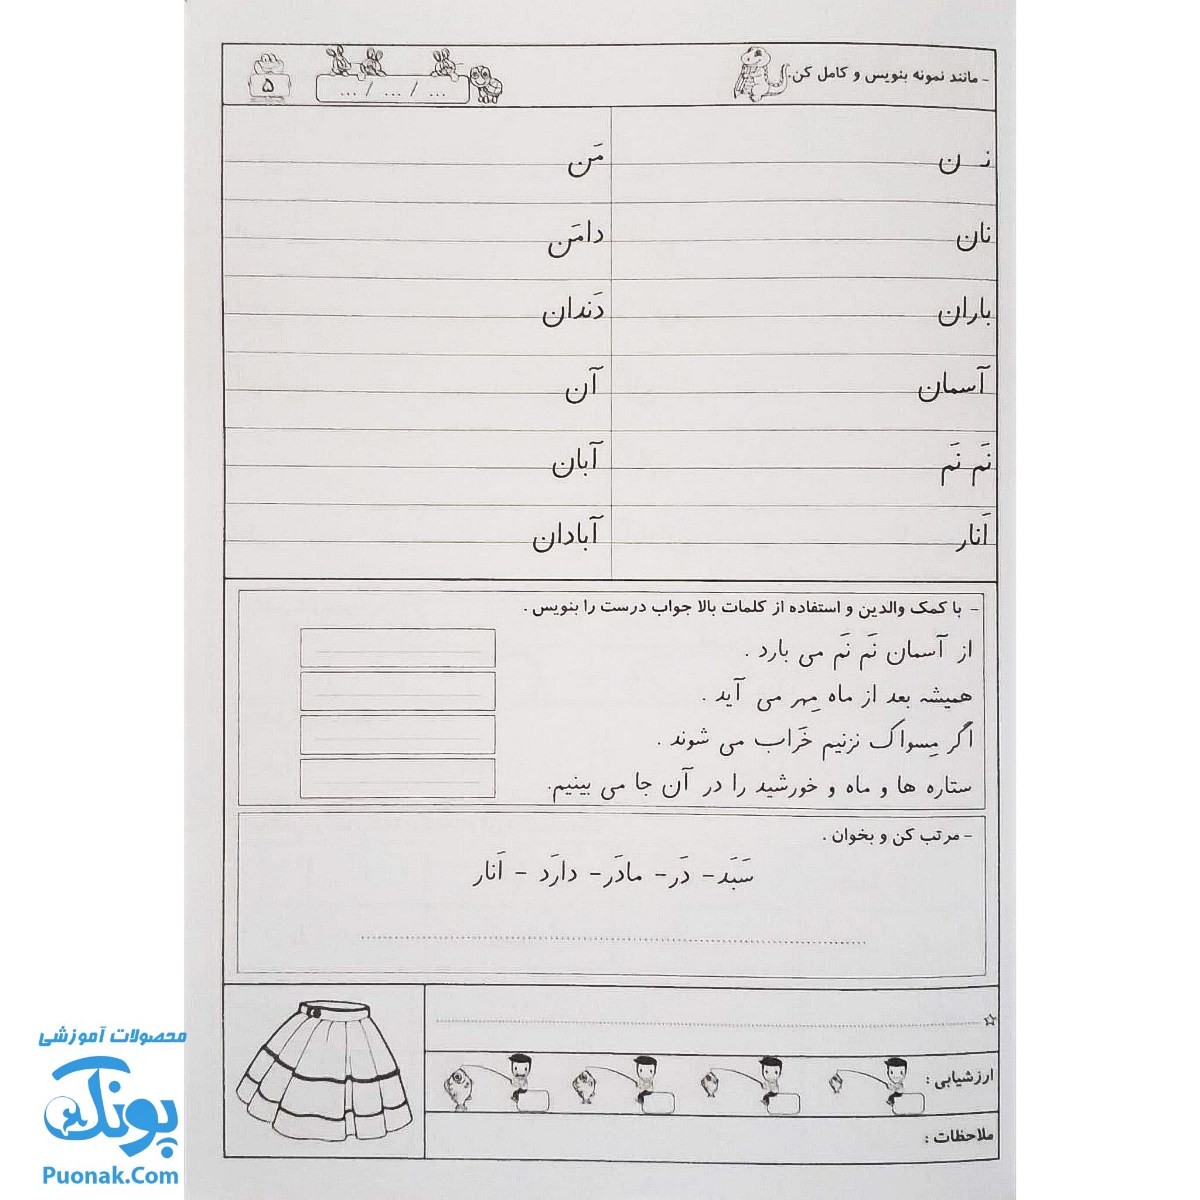 - مانند نمونه بنویس و کامل کن.
... / ... / ...
۵
نـ ـن
مَن
نان
دامَن
باران
دَندان
آسمان
آن
نَم نَم
آبان
اَنار
آبادان
- با کمک والدین و استفاده از کلمات بالا جواب درست را بنویس .
از آسمان نَم نَم می بارد .
همیشه بعد از ماه مِهر می آید .
اگر مِسواک نزنیم خَراب می شوند .
ستاره ها و ماه و خورشید را در آن جا می بینیم.
- مرتب کن و بخوان .
سَبَد - دَر - مادَر - دارَد - اَنار
☆
ارزشیابی :
ملاحظات :
محصولات آموزشی
پونک
Puonak.Com